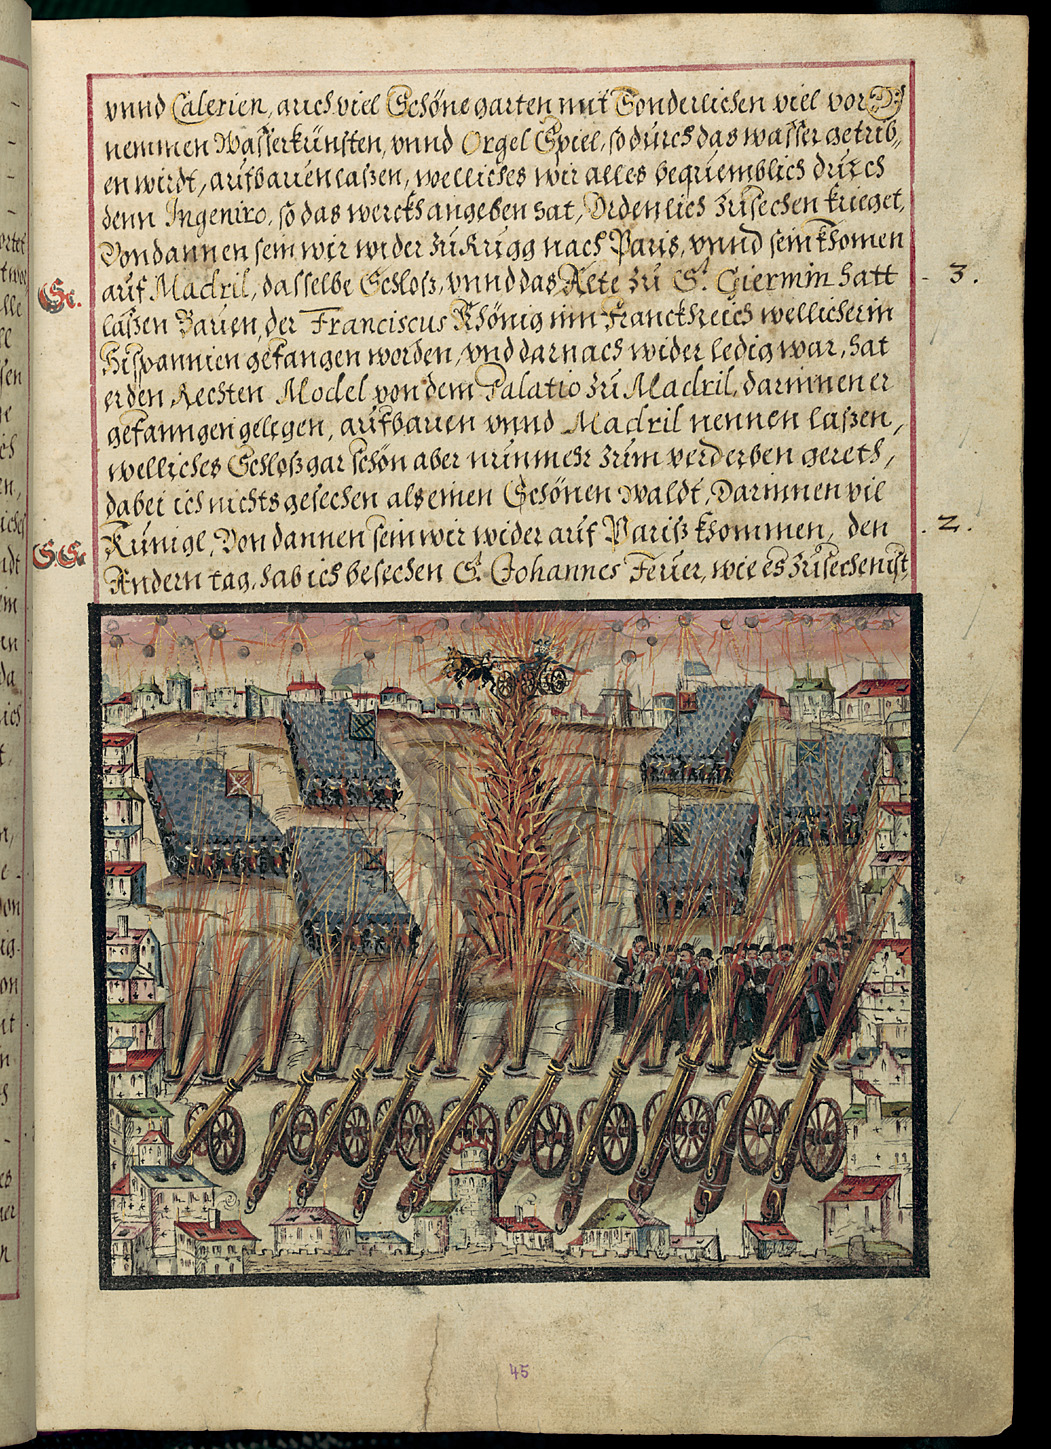 vnnd Galerien, auch viel Schöne garten mit Sonderlichen viel vor
nemmen Wasserkünsten, vnnd Orgel Spiel, so durch das wasser getrib,,
en wirdt, aufbauen laßen, welliches wir alles bequemblich durch
denn Ingeniro, so das werckh angeben hat, Ordenlich zusechen krieget,
Von dannen sein wir wider zu Rugg nach Paris, vnnd sein khomen
auf Madril, dasselbe Schloß, vnnd das Alte zu St. Giermin hatt
3.
laßen Bauen, der Franciscus Khönig inn Franckhreich wellicher in
Hispannien gefangen worden, vnd darnach wider ledig war, hat
er den Rechten Model von dem Palatio zu Madril, darinnen er
gefanngen gelegen, aufbauen vnnd Madril nennen laßen,
welliches Schloß gar schön aber nunmehr zum verderben gereth,
dabei ich nichts gesechen als einen Schönen Waldt, Darinnen vil
Künigl, Von dannen sein wir wider auf Pariß khommen, den
2.
Andern tag, hab ich besechen St. Johannes Feuer, wie es zusechen ist,
45